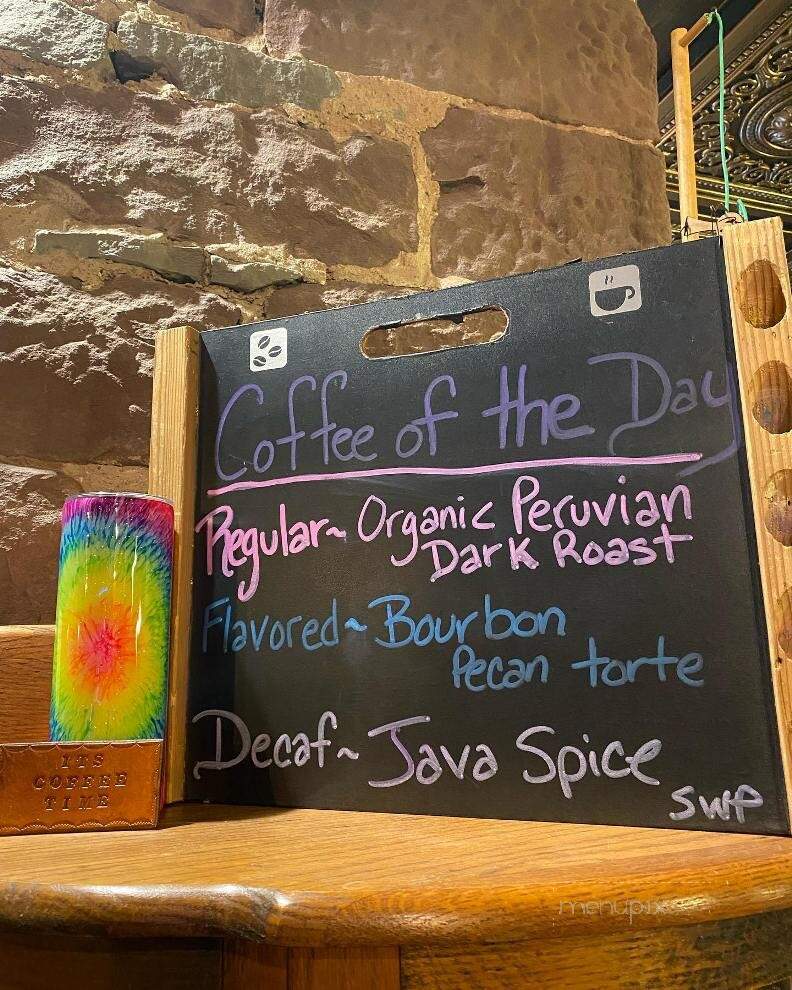 Coffee of the Day
Regular~ Organic Peruvian
Dark Roast
Flavored~ Bourbon
Pecan torte
Decaf~ Java Spice
SWP
ITS
COFFEE
TIME
menupix